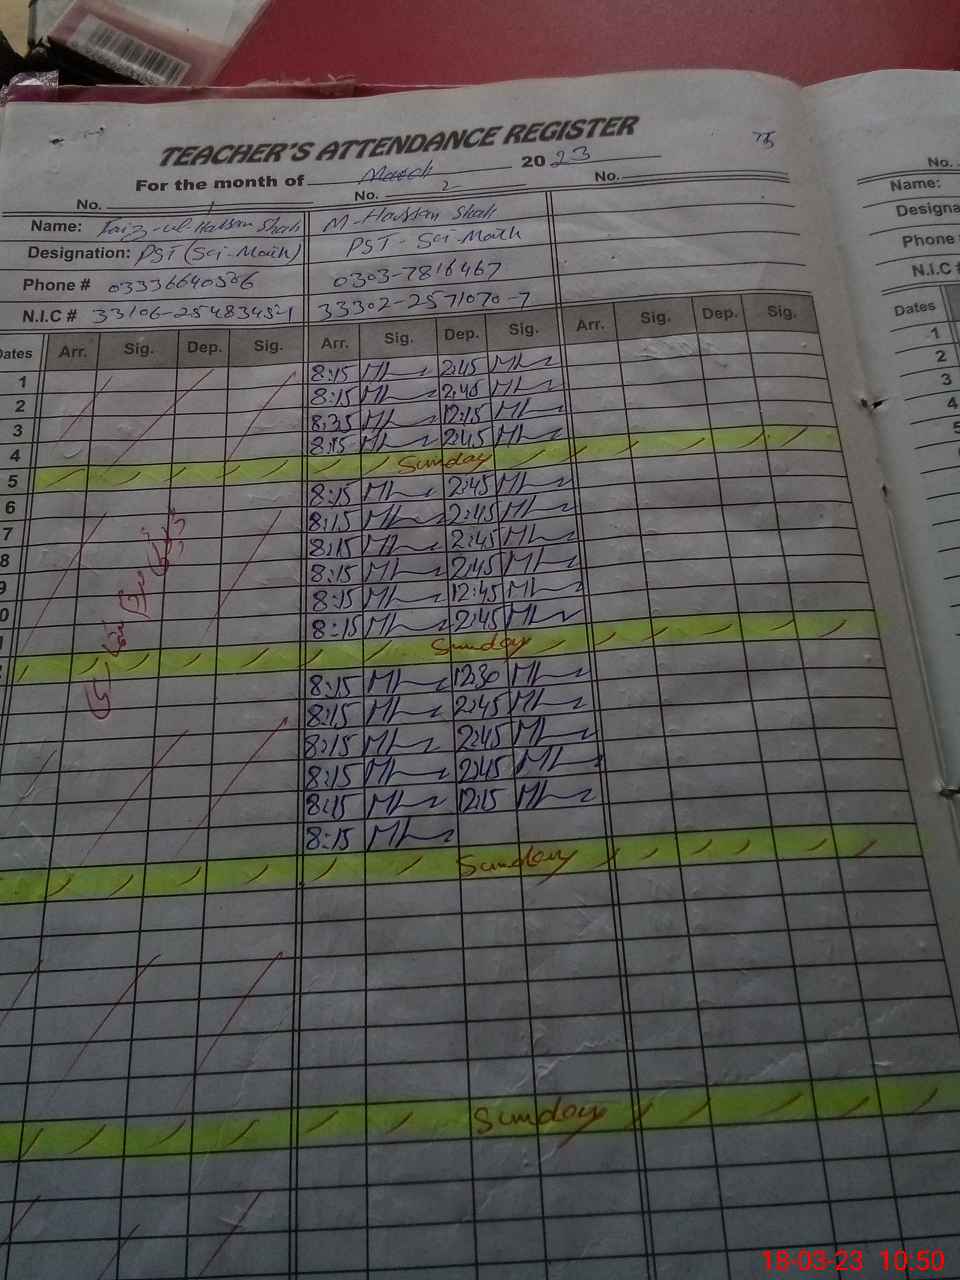 TEACHER'S ATTENDANCE REGISTER
For the month of March 2023
No. 1 No. 2 No.
Name: Faiz-ul-Hassan Shah M-Hassan Shah
Designation: PST (Sci-Math) PST-Sci-Math
Phone # 03336640506 0303-7816467
N.I.C # 33106-2548345-1 33302-2571070-7
Dates Arr. Sig. Dep. Sig. Arr. Sig. Dep. Sig. Arr. Sig. Dep. Sig.
1 8:15 2:45
2 8:15 2:45
3 8:35 12:15
4 8:15 2:45
5 Sunday
6 8:15 2:45
7 8:15 2:45
8 8:15 2:45
9 8:15 2:45
0 8:15 12:45
8:15 2:45
Sunday
8:15 12:30
8:15 2:45
8:15 2:45
8:15 2:45
8:15 12:15
8:15
Sunday
Sunday
No.
Name:
Designa
Phone
N.I.C #
Dates
1
2
3
4
5
18-03-23 10:50